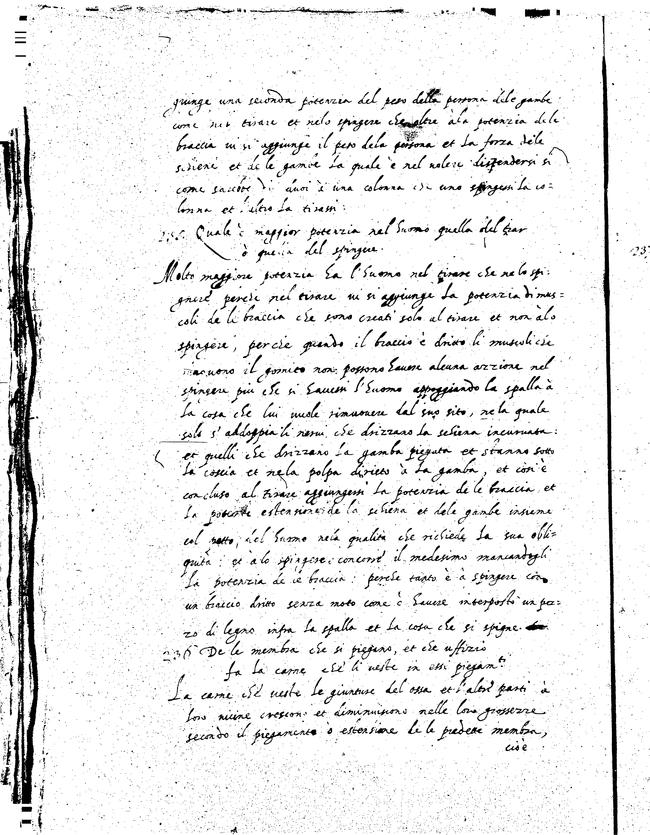 giunge una seconda potenzia del peso della persona dele gambe
come nel tirare et nelo spingere che oltre àla potenzia dele
braccia vi si aggiunge il peso dela persona et la forza dele
schiene et dele gambe la quale è nel volere distendersi si
come sarebbe di duoi à una colonna che uno spingessi la co=
lonna et l'altro la tirassi.
235 Quale è maggior potenzia nel huomo quella del tirar
ò quella del spingere.
Molto maggiore potenzia ha l'huomo nel tirare che nelo spi=
gnere, perche nel tirare vi si aggiunge la potenzia di mus=
coli deli braccia che sono creati solo al tirare et non àlo
spingere, perche quando il braccio è dritto li muscoli che
muovono il gomito non possono havere alcuna azzione nel
spingere più che si havessi l'huomo appoggiando la spalla à
la cosa che lui vuole rimuovere dal suo sito, nela quale
solo s'addoppia li nervi che drizzano la schena incurvata:
et quelli che drizzano la gamba piegata et stanno sotto
la coscia et nela polpa dirieto à la gamba, et così è
concluso al tirare aggiungersi la potenzia dele braccia et
la potente estensione dela schena et dele gambe insieme
col petto, del huomo nela qualità che richiede la sua obli=
quità: et àlo spingere concorre il medesimo mancandogli
la potenzia dele braccia: perche tanto è à spingere con
un braccio dritto senza moto come è havere interposti un pez=
zo di legno infra la spalla et la cosa che si spigne
236 De le membra che si piegano, et che uffizio
fa la carne che li veste in essi piegamti
La carne che veste le giunture del ossa et l'altre parti à
loro vicine crescono et diminuiscono nelle loro grossezze
secondo il piegamento o estensione dele predette membra,
cioè